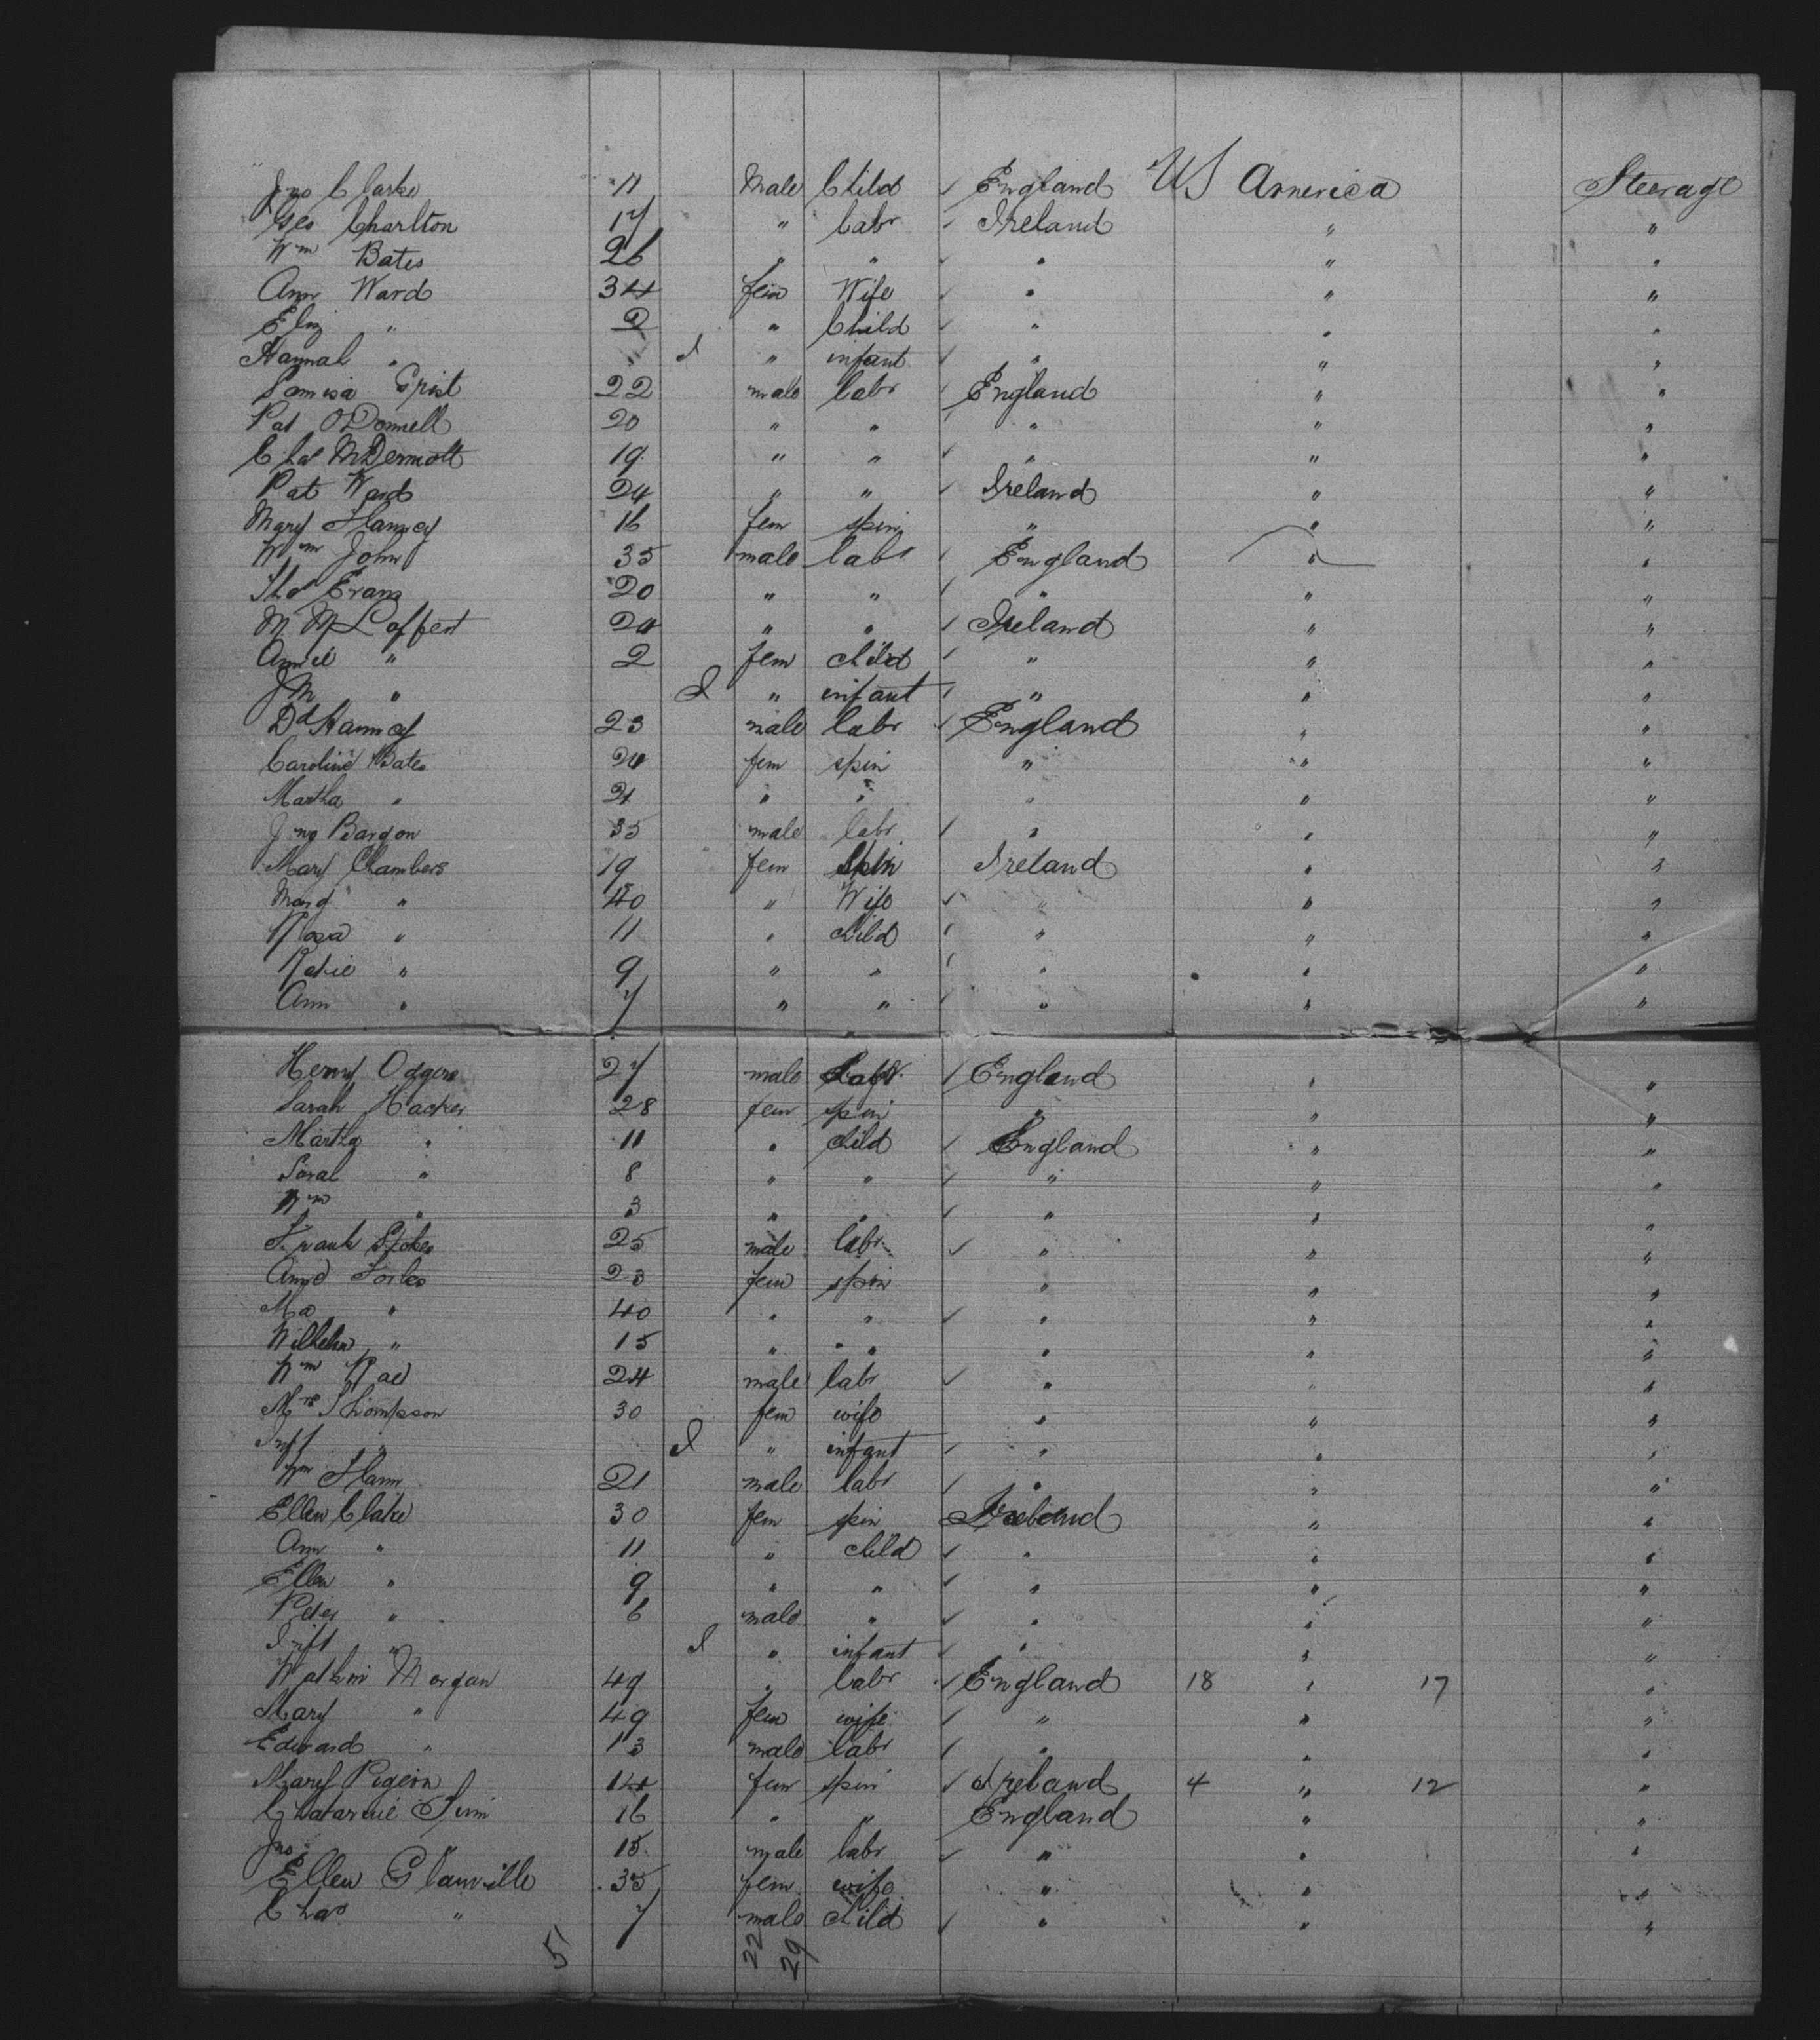 Jno Clarke 11 Male Child ✓ England US America Steerage
Geo Charlton 17 " Labr ✓ Ireland " "
Wm Bates 26 " " ✓ " " "
Ann Ward 34 fem Wife ✓ " " "
Eliz " 2 " Child ✓ " " "
Hannah " " I " infant ✓ " " "
Grist 22 male labr ✓ England " "
Pat O'Donnell 20 " " ✓ " " "
Chas McDermott 19 " " ✓ " " "
Pat Ward 24 " " ✓ Ireland " "
Mary Hannay 16 fem spin " " "
Wm John 35 male labr ✓ England " "
Thos Evans 20 " " ✓ " " "
M McLaffert 24 " " ✓ Ireland " "
Annie " 2 fem child ✓ " " "
JM " I " infant ✓ " " "
Dd Hannay 23 male labr ✓ England " "
Caroline Bates 24 fem spin " " "
Martha " 21 " " " " "
Jno Bargon 35 male labr ✓ " " "
Mary Chambers 19 fem Spin Ireland " "
Marg " 40 " Wife ✓ " " "
Rosa " 11 " child ✓ " " "
Katie " 9 " " ✓ " " "
Ann " 7 " " ✓ " " "
Henry Odgers 27 male Labr ✓ England " "
Sarah Hacker 28 fem spin " " "
Martha " 11 " child ✓ England " "
Sarah " 8 " " ✓ " " "
Wm " 3 " " ✓ " " "
Frank Stokes 25 male labr ✓ " " "
23 fem spin " " "
Ma " 40 " " ✓ " " "
Wilhelm " 15 " " " " "
Wm Rae 24 male labr ✓ " " "
Mrs Thompson 30 fem wife " " "
Inft " I " infant ✓ " " "
Wm Hann 21 male labr ✓ " " "
Ellen Clake 30 fem spin Ireland " "
Ann " 11 " child ✓ " " "
Ellen " 9 " " ✓ " " "
Peter " 6 male " ✓ " " "
Inft " I " infant ✓ " " "
Morgan 49 " labr ✓ England 18 " 17 "
Mary " 49 fem wife ✓ " " "
Edward " 13 male labr ✓ " " "
Mary Pigeon 14 fem spin ✓ Ireland 4 " 12 "
16 " " England " "
Jno " 15 male labr ✓ " " "
Ellen Glanville 35 fem wife " " "
Chas " 7 male child ✓ " " "
5 22 29